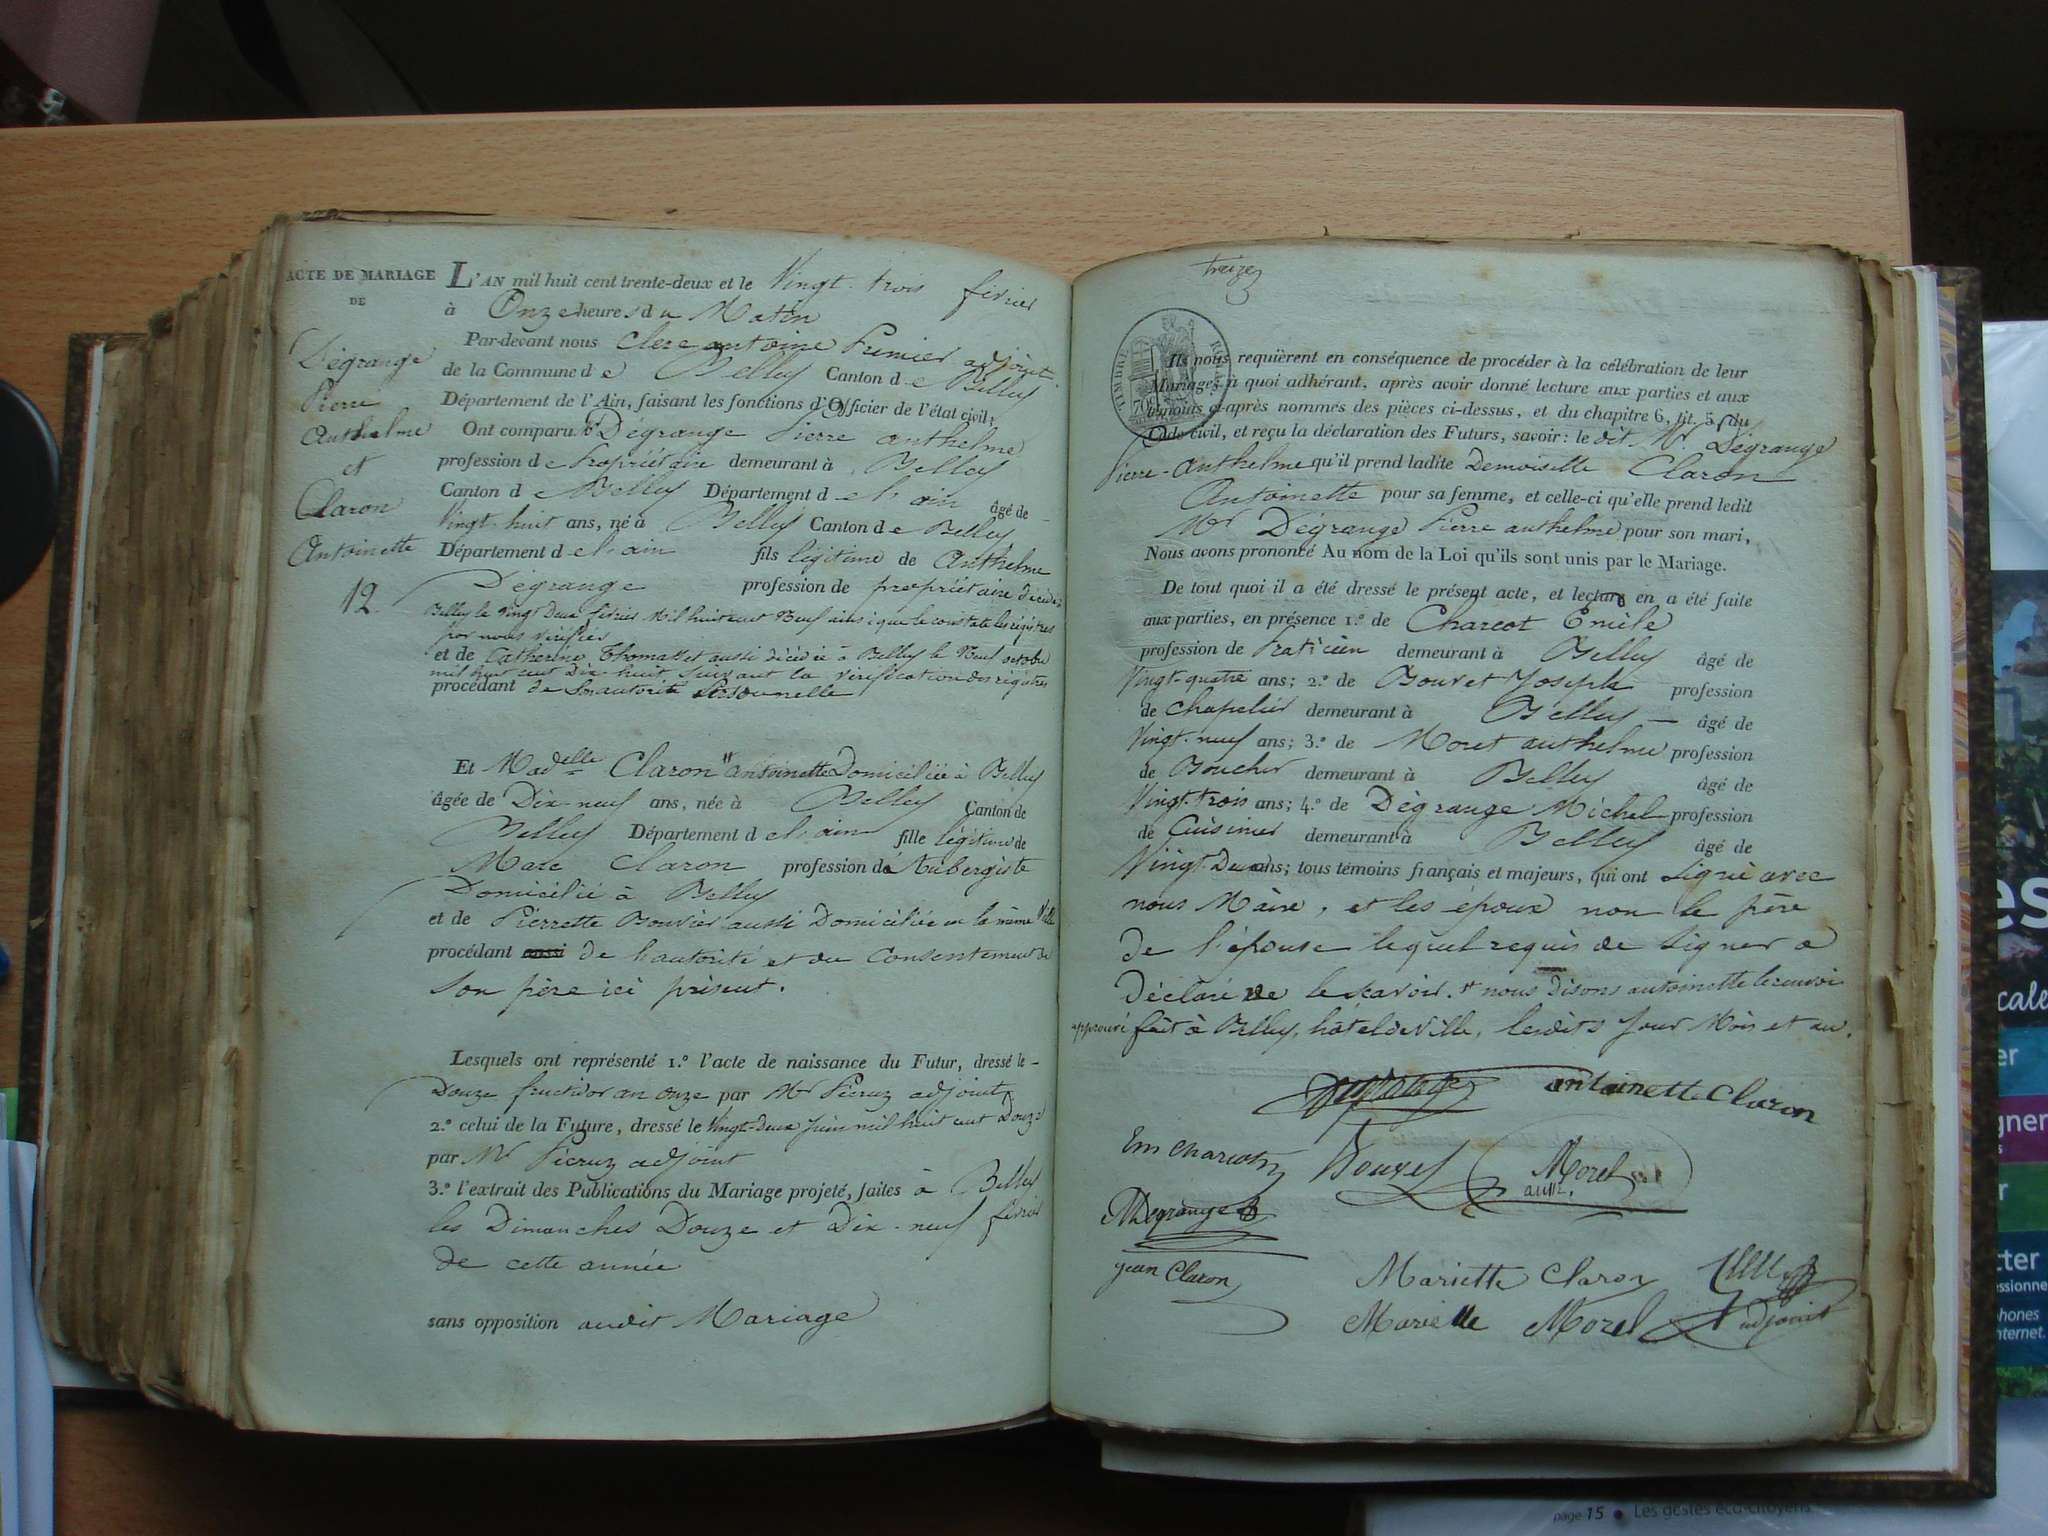 ACTE DE MARIAGE
DE
Dégrange
Pierre
Anthelme
et
Claron
Antoinette
12.
L'AN mil huit cent trente-deux et le Vingt-trois février
à Onze heures du Matin
Par-devant nous Clerc antoine Premier adjoint
de la Commune de Belley Canton de Belley
Département de l'Ain, faisant les fonctions d'Officier de l'état civil;
Ont comparu Mr Dégrange Pierre anthelme
profession de Propriétaire demeurant à Belley
Canton de Belley Département de l'ain âgé de
Vingt-huit ans, né à Belley Canton de Belley
Département de l'ain fils légitime de Anthelme
Dégrange profession de propriétaire décédé à
Belley le Vingt Deux février Mil huit cent Neuf ainsi que le constate les régistres
par nous vérifiés
et de Catherine Thomasset aussi décédée à Belley le Neuf octobre
mil huit cent Dix-huit suivant la vérification des régistres
procédant de son autorité Personnelle
Et Madelle Claron Antoinette Domiciliée à Belley
âgée de Dix-neuf ans, née à Belley Canton de
Belley Département de l'ain fille légitime de
Marc Claron profession de Aubergiste
Domicilié à Belley
et de Pierrette Bouvier aussi Domiciliée en la même Ville
procédant de l'autorité et du Consentement de
Son père ici présent.
Lesquels ont représenté 1.º l'acte de naissance du Futur, dressé le
Douze fructidor an onze par Mr Pécruz adjoint
2.º celui de la Future, dressé le Vingt-Deux juin mil huit cent Douze
par Mr Pécruz adjoint
3.º l'extrait des Publications du Mariage projeté, faites à Belley
les Dimanches Douze et Dix-neuf février
de cette année
sans opposition audit Mariage
treize
TIMBRE ROYAL
70
Ils nous requièrent en conséquence de procéder à la célébration de leur
Mariage; à quoi adhérant, après avoir donné lecture aux parties et aux
témoins ci-après nommés des pièces ci-dessus, et du chapitre 6, tit. 5, du
Code civil, et reçu la déclaration des Futurs, savoir: le dit Mr Dégrange
Pierre-Anthelme qu'il prend ladite Demoiselle Claron
Antoinette pour sa femme, et celle-ci qu'elle prend ledit
Mr Dégrange Pierre anthelme pour son mari,
Nous avons prononcé Au nom de la Loi qu'ils sont unis par le Mariage.
De tout quoi il a été dressé le présent acte, et lecture en a été faite
aux parties, en présence 1.º de Charcot Emile
profession de Praticien demeurant à Belley âgé de
Vingt-quatre ans; 2.º de Bouvet Joseph profession
de Chapelier demeurant à Belley âgé de
Vingt-neuf ans; 3.º de Morel anthelme profession
de Boucher demeurant à Belley âgé de
Vingt-trois ans; 4.º de Dégrange Michel profession
de Cuisinier demeurant à Belley âgé de
Vingt-Deux ans; tous témoins français et majeurs, qui ont signé avec
nous Maire, et les époux non le père
de l'épouse lequel requis de signer a
Déclaré ne le savoir. nous disons antoinette le renvoi
approuvé fait à Belley, hôtel de ville, lesdits jour Mois et an.
antoinette Claron
Em Charcot Bouvet Morel
anth.
MDegrange
jean Claron Mariette Claron
Mariette Morel adjoint
es
cale
page 15 • Les gestes éco-citoyens